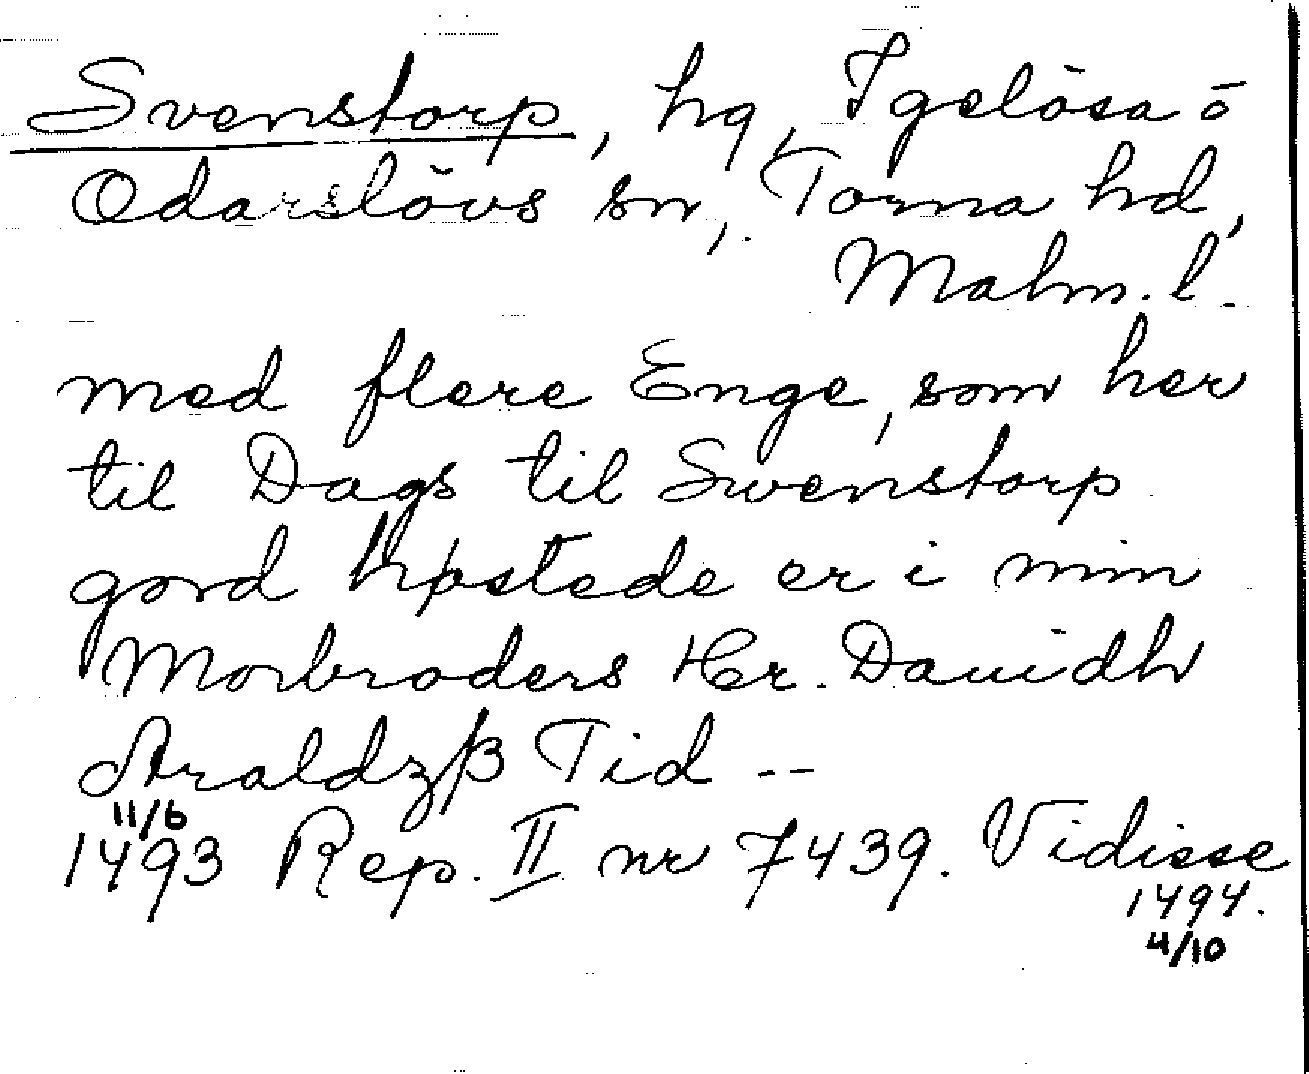 Svenstorp, hg, Igelösa o
Odarslövs sn, Torna hd,
Malm. l.
med flere Enge, som her
til Dags til Swenstorp
gord høstede er i min
Morbroders Her. Dauidh
Araldzß Tid --
11/6
1493 Rep. II nr 7439. Vidisse
1494.
4/10